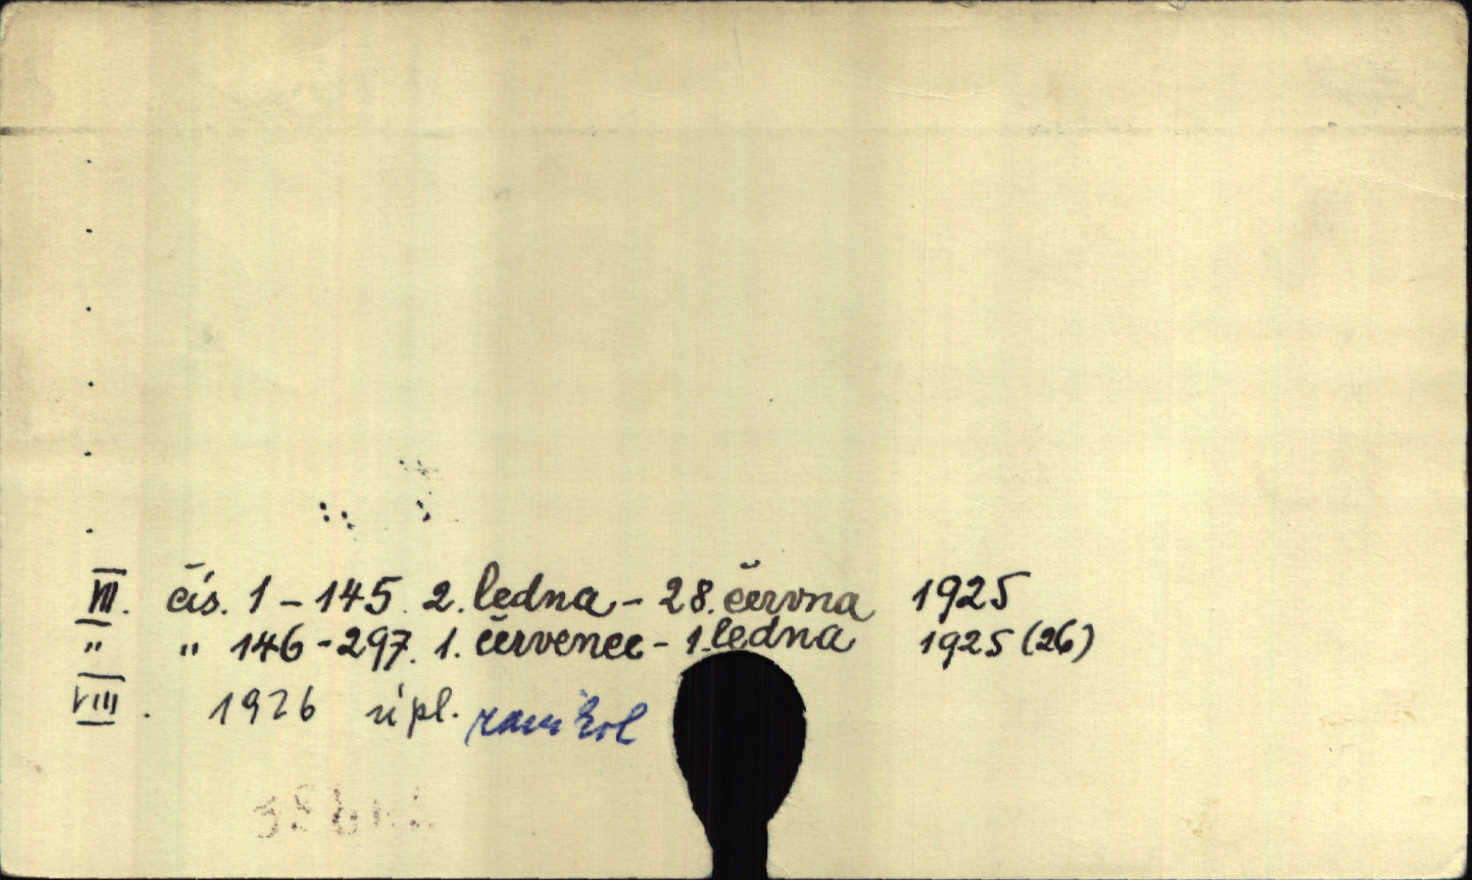 VII. čís. 1 - 145. 2. ledna - 28. června 1925
" " 146 - 297. 1. červenec - 1. ledna 1925 (26)
VIII. 1926 úpl.